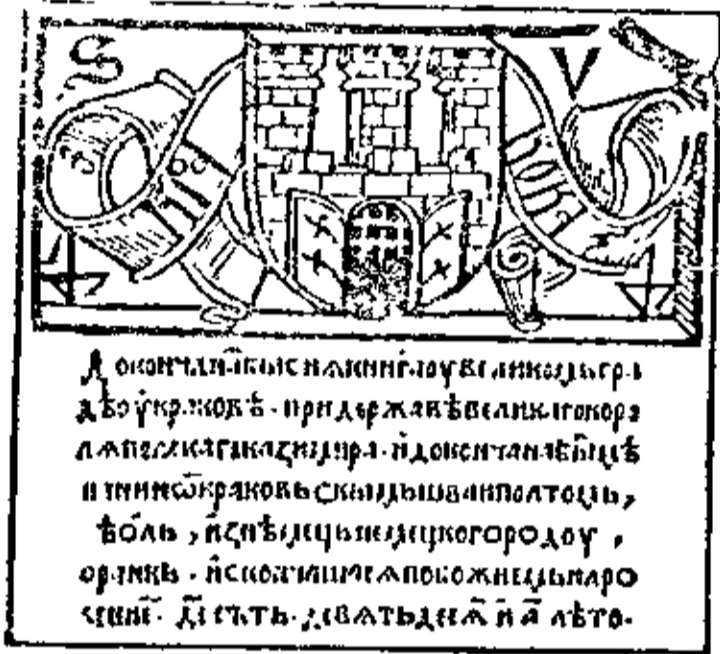 S V
Докончана бы сиѧ книга оу великомь гра
дѣ оу краковѣ · при державѣ великаго коро
лѧ полскаго казимира · и докончана бы мѣ
щанинѿ краковьскымь шваиполтомь,
ѣоль , из нѣмець немецкого родоу ,
и скончашасѧ по божнемь наро
женїе · д҃і сътъ · девѧтьдесѧ и а҃ лѣто ·